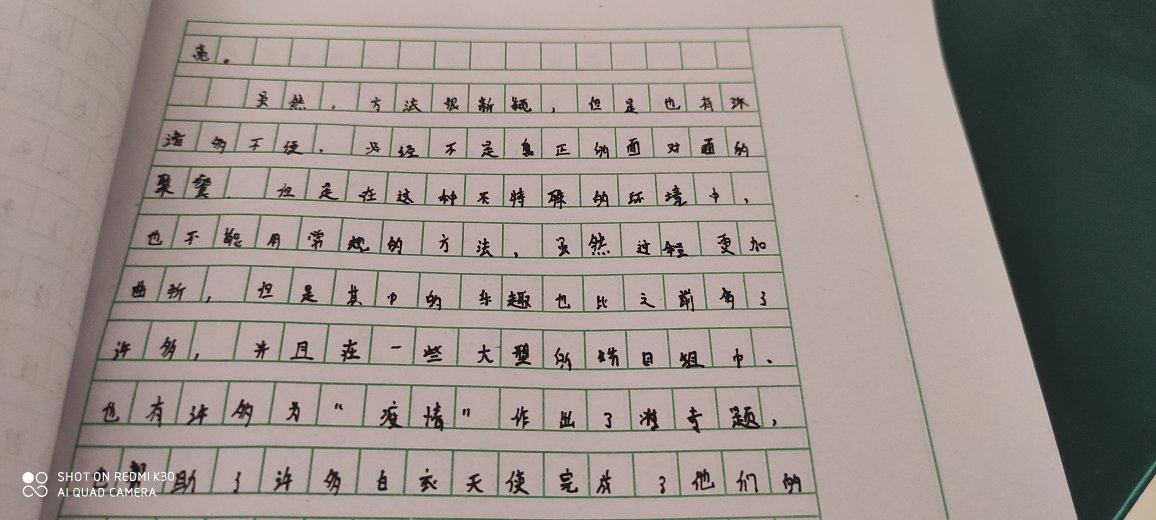 亮。
虽然，方法很新颖，但是也有许
诸多不便，必经不是真正的面对面的
聚餐，但是在这种不特殊的环境中，
也不能用常规的方法，虽然过程更加
曲折，但是其中的乐趣也比之前多了
许多，并且在一些大型的节目组中，
也有许多为“疫情”作出了专题，
也帮助了许多白衣天使完成了他们的
SHOT ON REDMI K30
AI QUAD CAMERA